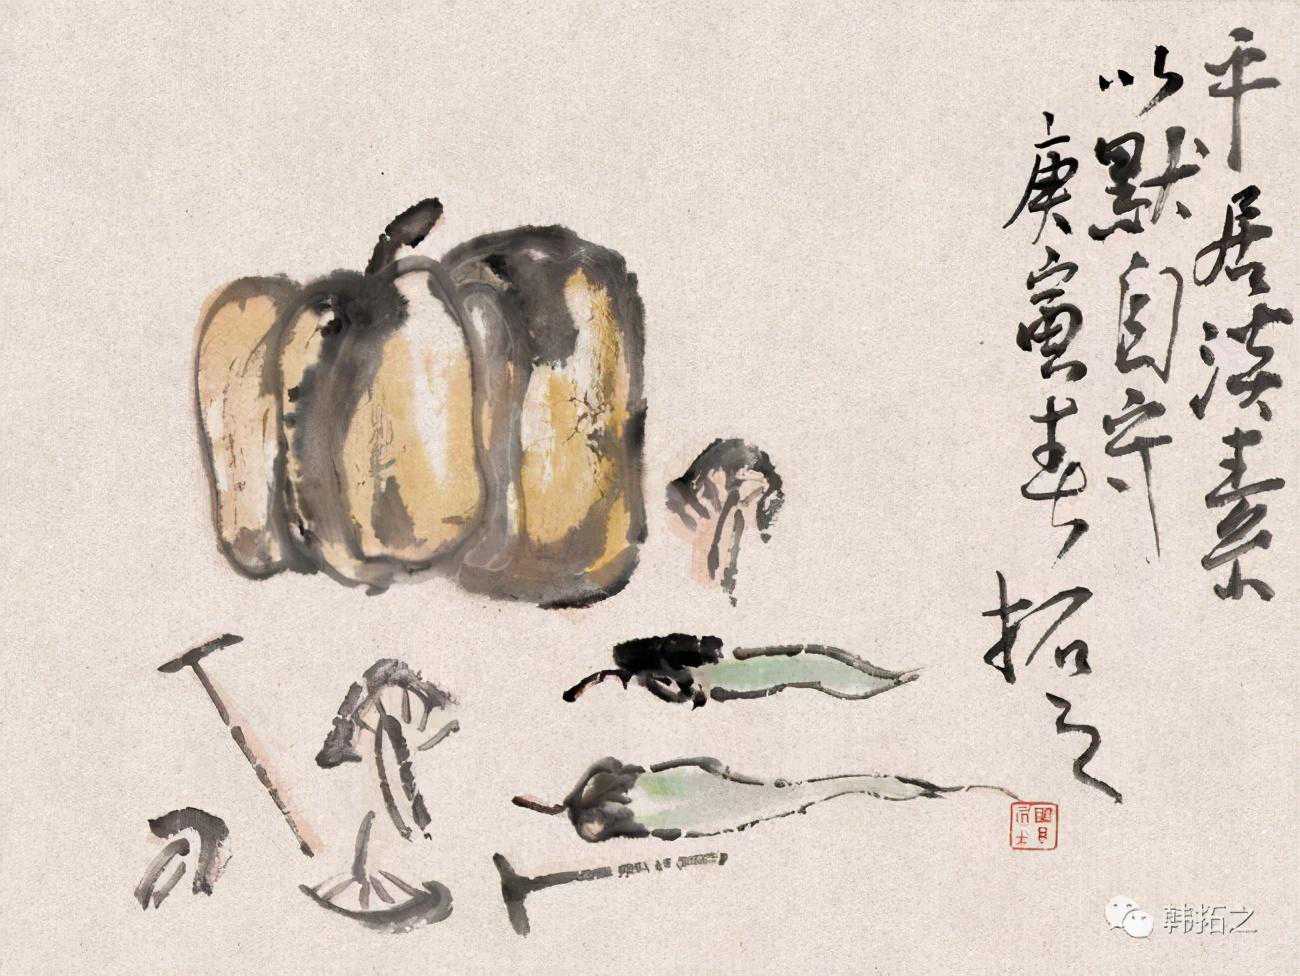 平居淡素
以默自守
庚寅春
拓之
韩拓之